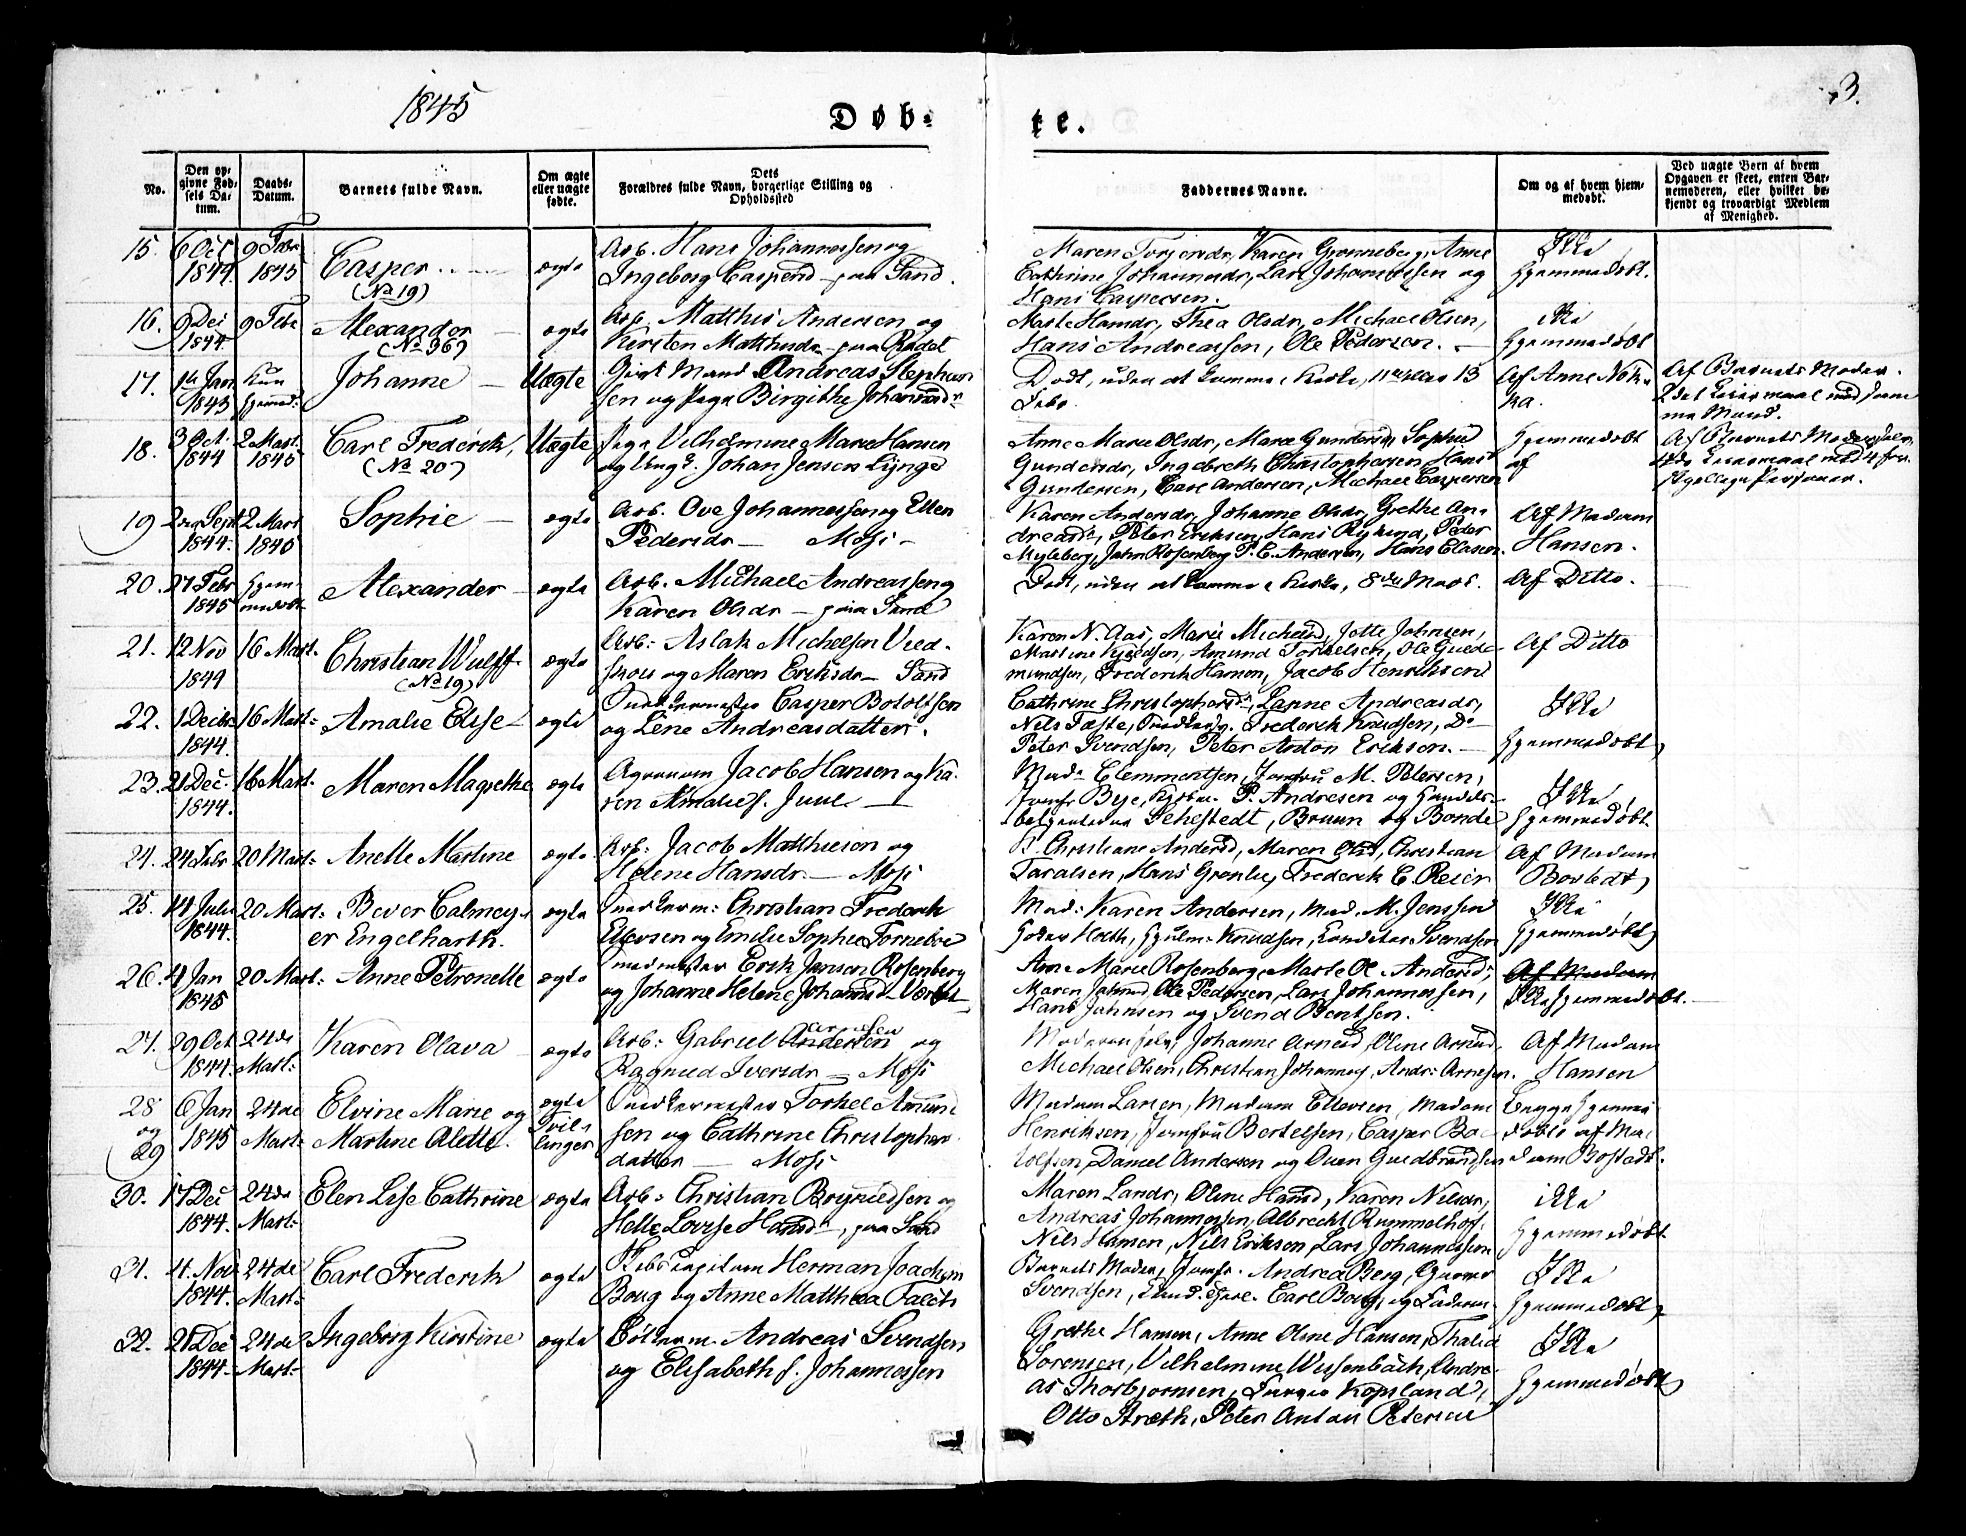 1845
3.
Døb-
te.
No.
Den op-
givne Fød-
sels Da-
tum.
Daabs-
Datum.
Barnets fulde Navn.
Om ægte
eller uægte
fødte.
Dets
Forældres fulde Navn, borgerlige Stilling og
Opholdssted
Faddernes Navne.
Om og af hvem hjem-
medøbt.
Ved uægte Børn af hvem
Opgaven er skeet, enten Bar-
nemoderen, eller hvilket be-
kjendt og troværdigt Medlem
af Menighed.
15. 6 Oct 1844 9 Febr 1845 Casper (No 19) ægte
Arb. Hans Johannessen og
Ingeborg Caspersd paa Sand.
Maren Torjersdr, Karen Grønneberg, Anne
Cathrine Johannesdr, Lars Johannessen og
Hans Caspersen.
Ikke
hjemmedøbt.
16. 9 Dec 1844 9 Febr Alexander (No 36) ægte
Arb. Matthis Andersen og
Kirsten Matthisdr paa Rødet
Marte Hansdr, Thea Olsdr, Michael Olsen,
Hans Andreassen, Ole Pedersen.
ikke
hjemmedøbt
17. Jan 1845 Kun hjemmed: Johanne Uægte
Gift Mand Andreas Stephan
sen og Pige Birgithe Johansd
Død, uden at komme i Kirke, 13
Febr.
Af Anne
Af Barnets Moder.
2det Leiermaal med samme
Mand.
18. 3 Oct. 1844 2 Mart. 1845 Carl Frederik, (No 20) Uægte
Pige Vilhelmine Marie Hansen
og Ungk. Johan Jensen Lynge
Anne Marie Olsdr, Maren Gundersd, Sophie
Gundersdr, Ingebreth Christophersen, Hans
Gundersen, Carl Andersen, Michael Caspersen
Hjemmedøbt
af
Af Barnets Moder
Leiermaal med
Personer.
19 Sept 1844. 2 Mars 1845 Sophie ægte
Arb. Ove Johannessen og Ellen
Pedersdr Moss
Karen Andersdr, Johanne Olsdr, Grethe An-
dreasd, Peter Eriksen, Hans Rylund, Peder
Myleberg, John Rosenberg P. C. Andersen, Hans Clasen.
Af Madam
Hansen.
20. 27 Febr 1845 hjem-
medøbt Alexander ægte
Arb. Michael Andreassen og
Karen Olsdr paa Sand
Død, uden at komme i Kirke, 8de Mars.
Af Ditto.
21. 12 Nov 1844 16 Mart. Christian Wulff (No 19) ægte
Arb: Aslak Michelsen Vred-
og Maren Eriksdr Sand
Karen N. Aas, Marie Michelsd, Jotte Johnsen,
Martine Amund Torkelsen, Ole Gude-
mundsen, Frederik Hansen, Jacob Henriksen
Af Ditto
22. 1 Decbr 1844. 16 Mart: Amalie Elise ægte
Snedkermester Casper Botolfsen
og Lene Andreasdatter.
Cathrine Christophersd, Lanne Andreasdr,
Nils Frederik Knudsen, Do
Peter Svendsen, Peter Anton Eriksen.
Ikke
hjemmedøbt,
23. 21 Dec. 1844. 16 Mart. Maren Magrethe ægte
Jacob Hansen og Ka-
ren Amalie f. Juul
Mad Clemmentsen, Jomfru M. Petersen,
Jomfr Bye, P. Andresen og Handels-
betjenterne Sehestedt, Bruun og Bonde
Ikke
hjemmedøbt.
24. 24 Febr 20 Mart: Anette Martine ægte
Arb: Jacob Matthiesen og
Helene Hansdr Moss
Christiane Andersd, Maren Olsd, Christian
Taralsen, Hans Grønlie, Frederik C. Reier
Af Madam
Bostedt,
25. 14 Juli 1844. 20 Mart: Bever Calmey-
er Engelharth. ægte
Snedkerm: Christian Frederik
Ellevsen og Emilie Sophie Tornebre
Mad: Karen Andersen, Mad. M. Jenssen
Holth, Knudsen, Svendsen
Ikke
hjemmedøbt,
26. Jan 1845 20 Mart: Anne Petronelle ægte
Smedmester Erik Jansen Rosenberg
og Johanne Helene Johannsd
Anne Marie Rosenberg, Marte Ol. Andersd,
Maren Ole Pedersen, Lars Johannessen,
Hans Johnsen og Svend Bentsen.
Af Madam
Ikke hjemmedøbt.
27. 29 Oct 1844. 24de Mart: Karen Olava ægte
Arb: Gabriel Andersen og
Ragnild Iversdr Moss
Moderen selv, Johanne Arnesd, Oline Arnesd,
Michael Olsen, Christian Johannes, Andr: Arnesen.
Af Madam
Hansen
28 og 29 6 Jan 1845 24de Mart: Elvine Marie og
Martine Alette. ægte
Tvil-
linger
Snedkermester Torkel Amund
sen og Cathrine Christopher-
datter Moss
Madam Larsen, Madam Ellevsen, Madam
Henriksen, Jomfru Bertelsen, Casper Bo-
tolfsen, Daniel Andersen og Ouen Gudbrandsen
Begge hjemme
døbte af Ma-
dam Bostedt.
30. 17 Dec 1844. 24de Mart: Elen Lise Cathrine ægte
Arb: Christian Brynildsen og
Helle Lovise Hansd, paa Sand
Maren Landr, Oline Hansd, Karen Nilsdr,
Andreas Johannessen, Albrecht Rummelhof,
Nils Hansen, Nils Eriksen, Lars Johannessen
ikke
hjemmedøbt
31. Nov 1844. 24de Mart: Carl Frederik ægte
Skibscapitain Herman Joachim
Boug og Anne Matthea Falch
Barnets Moder, Jomfr. Andrea Berg,
Svendsen, Carl Boug, og Faderen
Ikke
hjemmedøbt,
32. 21 Dec 1844. 24de Mart: Ingeborg Kirstine ægte
Andreas Svendsen
og Elisabeth f. Johannessen
Grethe Hansen, Anne Oline Hansen, Thalia
Sørensen, Vilhelmine Wissenbach, Andre-
as Thorbjørnsen, Kopsland,
Otto Aræth, Peter Anton Petersen
Ikke
hjemmedøbt,